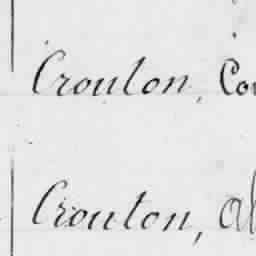 Croulon, Co
Crouton, Al